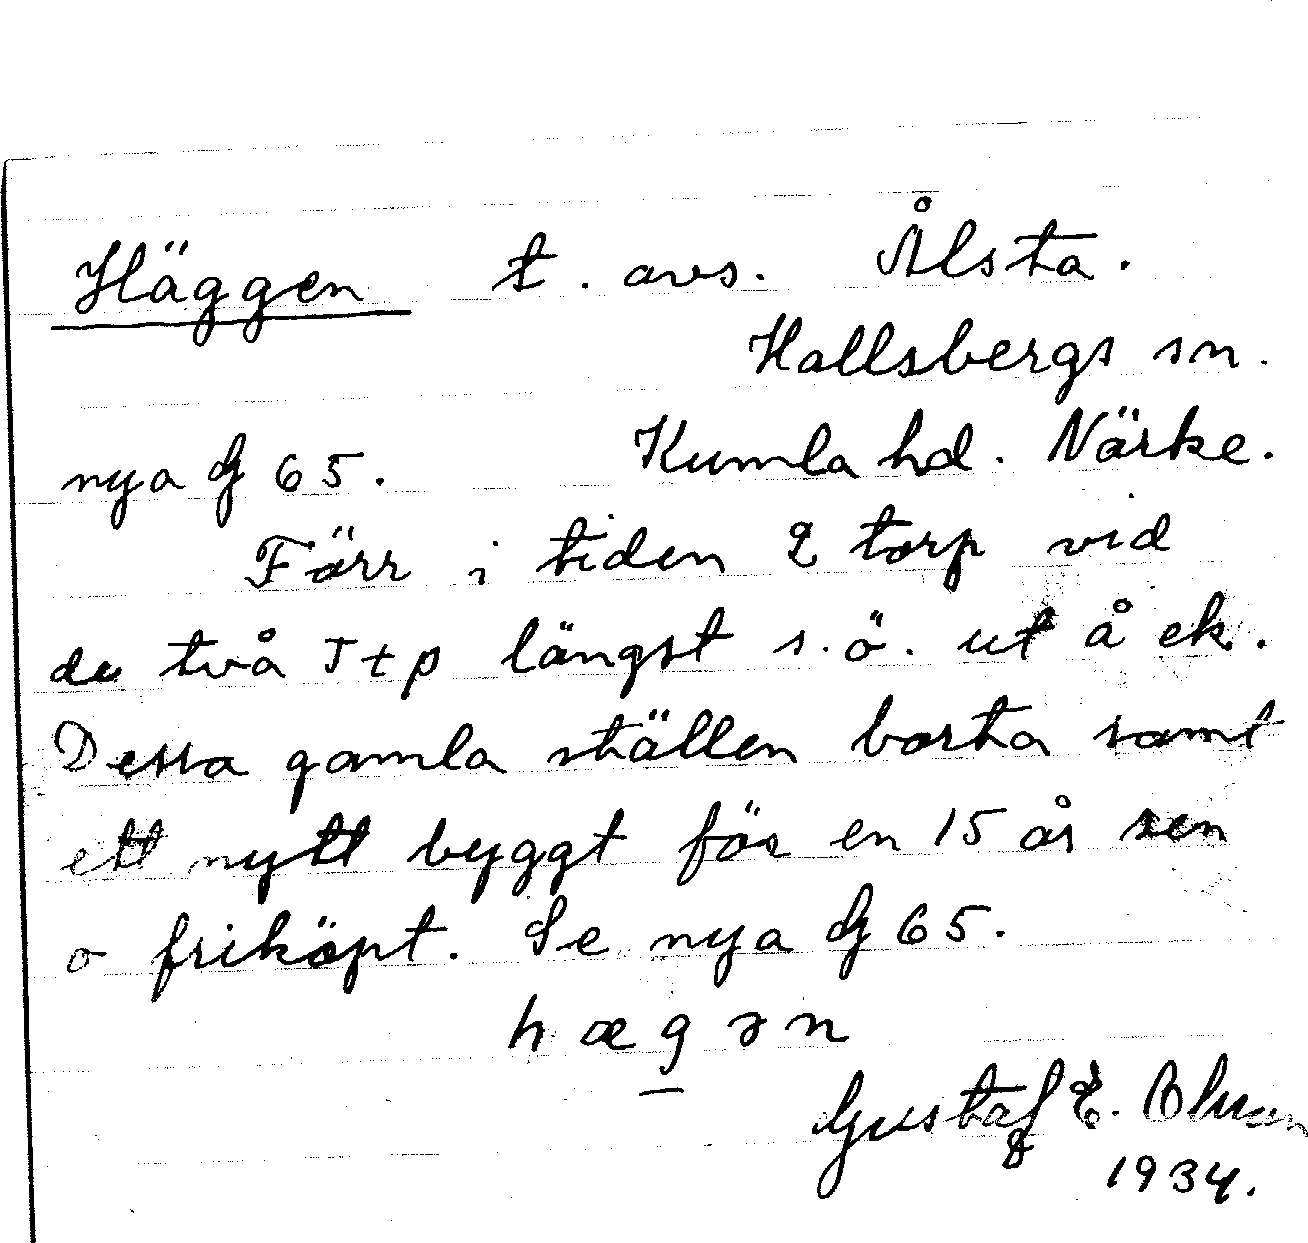 Häggen t. avs. Ålsta.
Hallsbergs sn.
nya G 65. Kumla hd. Närke.
Förr i tiden 2 torp vid
de två Jtp längst s.ö. ut å ek.
Dessa gamla ställen borta samt
ett nytt byggt för en 15 år sen
o friköpt. Se nya G 65.
hægən
Gustaf E.
1934.